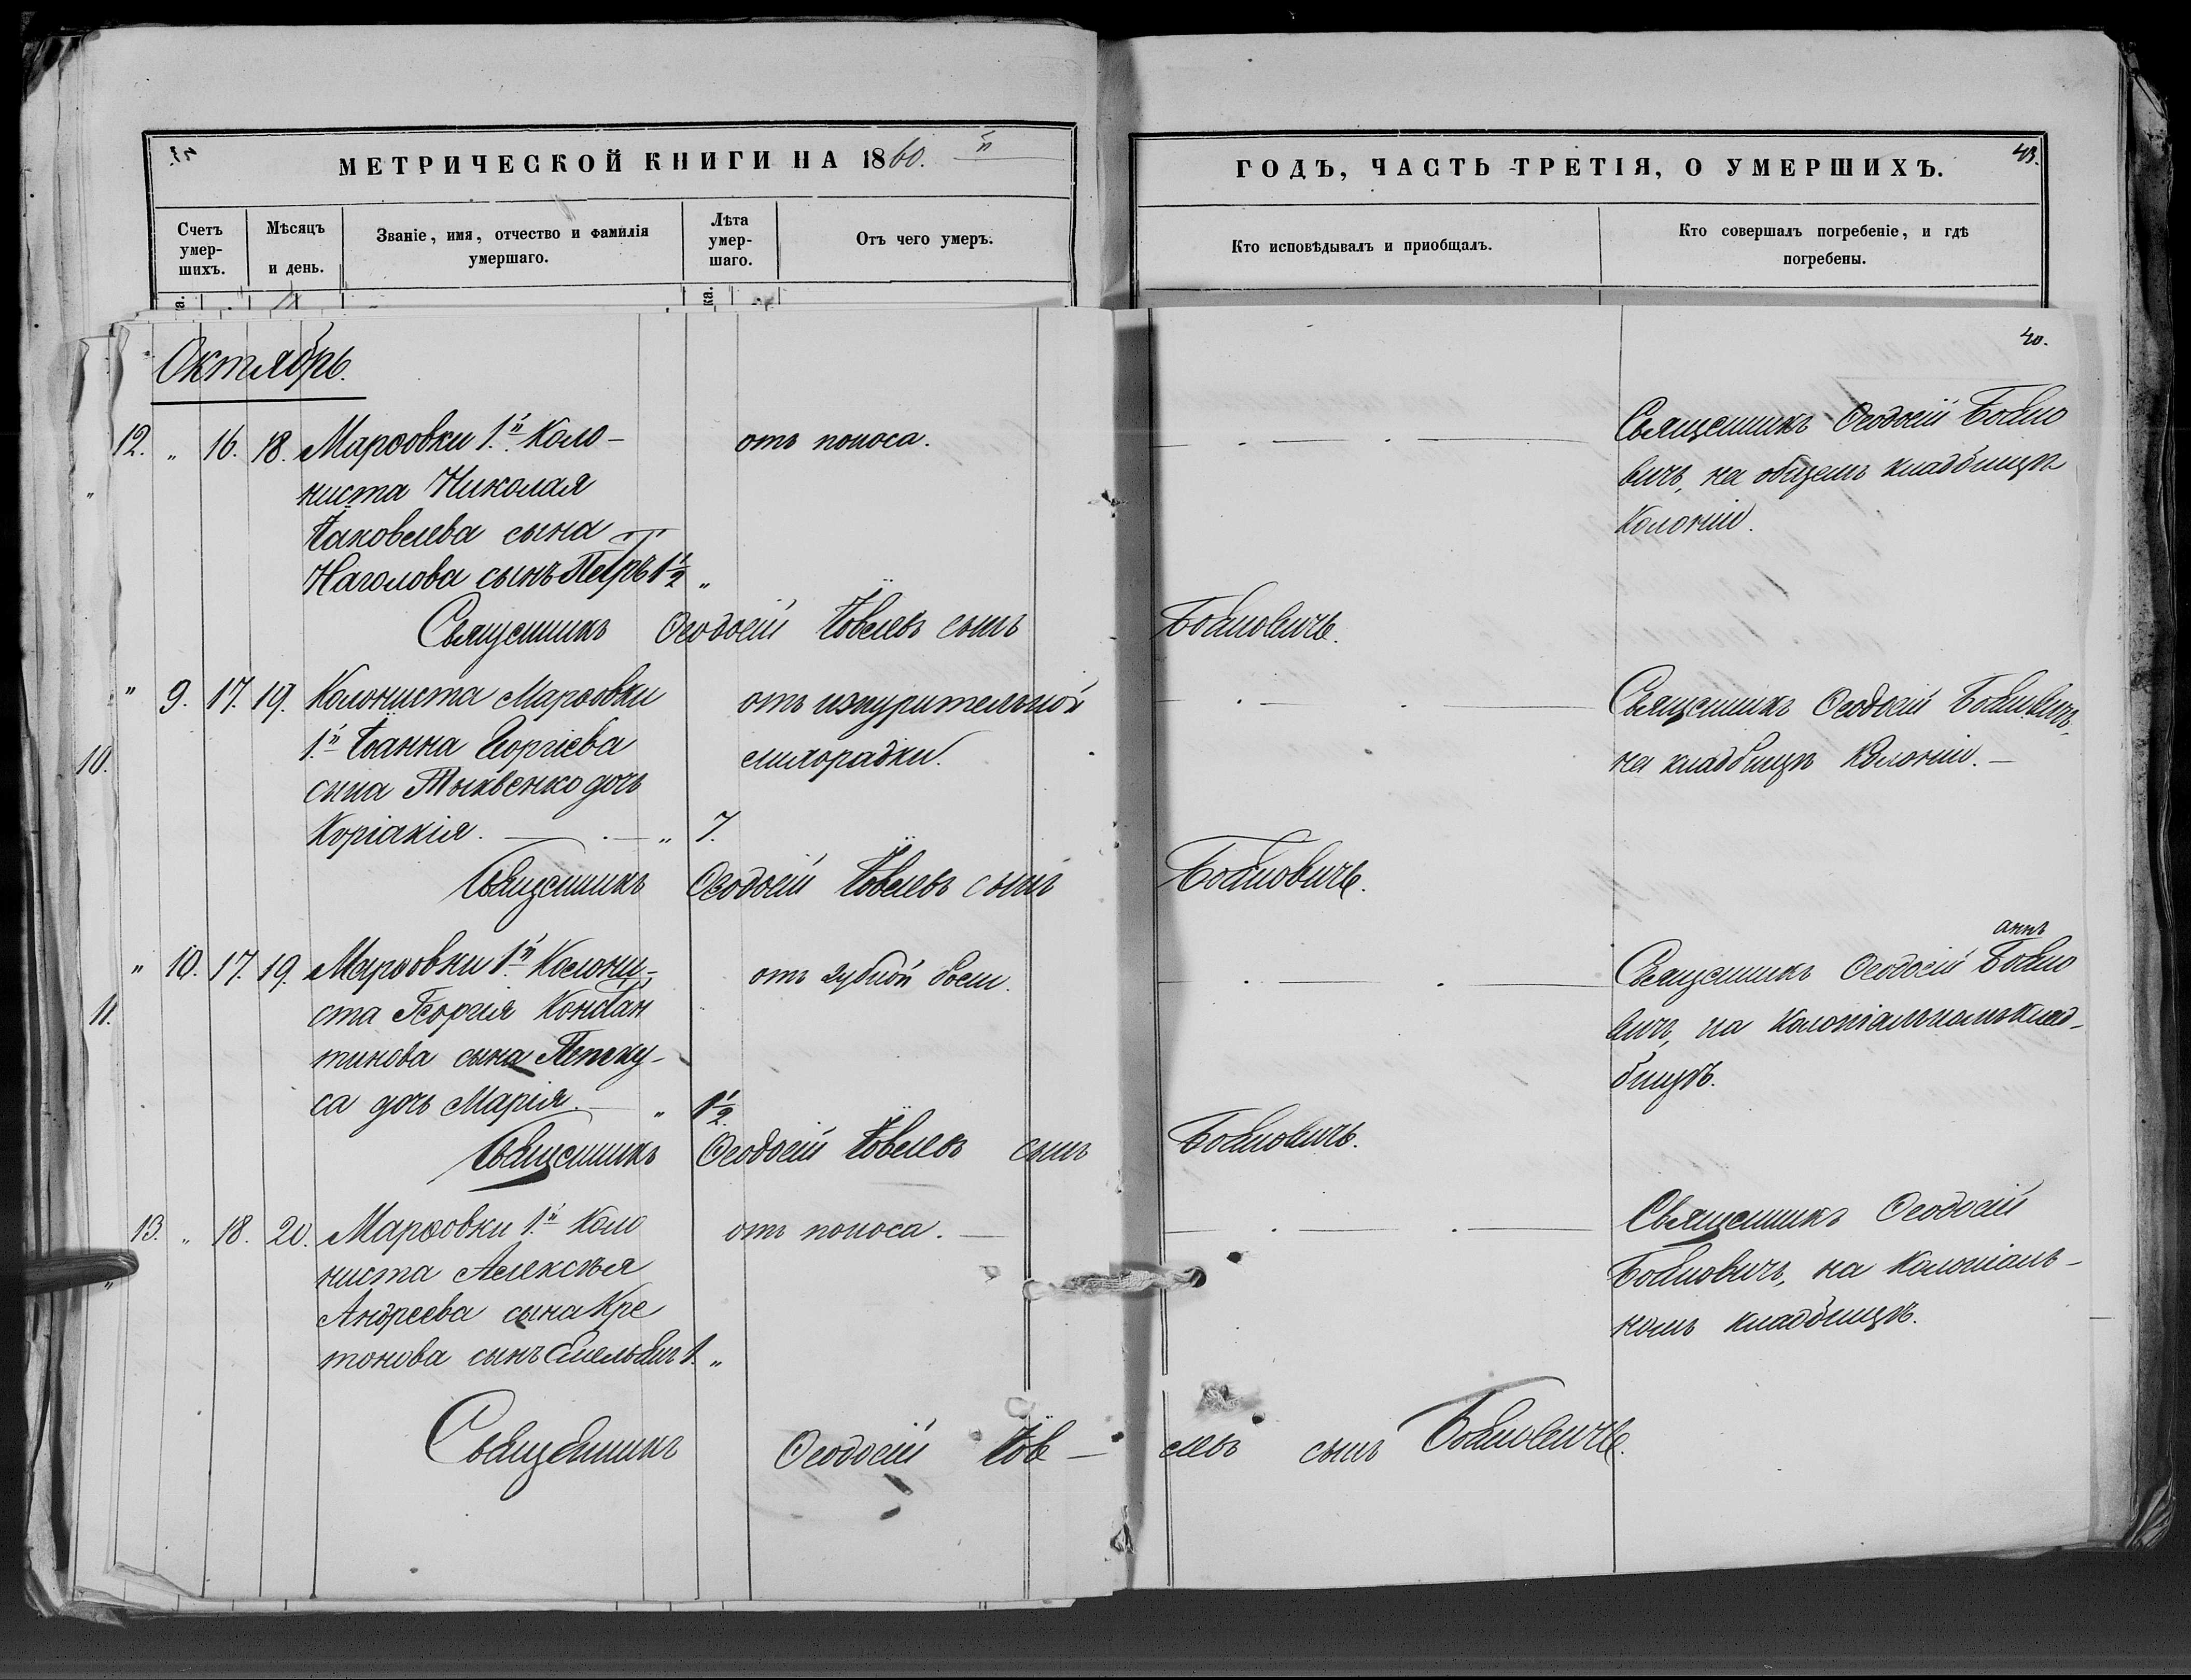 МЕТРИЧЕСКОЙ КНИГИ НА 1860.
ГОДЪ, ЧАСТЬ ТРЕТІЯ, О УМЕРШИХЪ.
43.
Счетъ умер-шихъ.
Мѣсяцъ и день.
Званіе, имя, отчество и фамилія умершаго.
Лѣта умер-шаго.
Отъ чего умеръ.
Кто исповѣдывалъ и приобщалъ.
Кто совершалъ погребеніе, и гдѣ погребены.
40.
Октябрь.
12. „ 16. 18. Марфовки 1.й Коло-
ниста Николая
Яковлева сына
Наголова сынъ Петръ 1½ „
отъ поноса.
Священникъ Ѳеодосій Бояно
вичъ, на общемъ кладбищѣ
Колоніи.
Священникъ Ѳеодосій Іовлевъ сынъ Бояновичъ.
„ 9. 17. 19. Колониста Марфовки
1.й Іоанна Георгіева
сына Тыквенко дочь
Киріакія. „ 7.
отъ изнурительной
лихорадки.
Священникъ Ѳеодосій Бояновичъ,
на кладбищѣ Колоніи.
10.
Священникъ Ѳеодосій Іовлевъ сынъ Бояновичъ.
„ 10. 17. 19. Марфовки 1.й Колони-
ста Георгія Констан
тинова сына Петку-
са дочь Марія. „ 1½.
отъ зубной боли.
Священникъ Ѳеодосій Бояно
вичъ, на Колоніальномъ клад-
бищѣ.
11.
Священникъ Ѳеодосій Іовлевъ сынъ Бояновичъ.
13. „ 18. 20. Марфовки 1.й Коло
ниста Алексѣя
Андреева сына Кре
тонова сынъ Емельянъ 1. „
отъ поноса.
Священникъ Ѳеодосій
Бояновичъ, на Колоніаль-
номъ кладбищѣ.
Священникъ Ѳеодосій Іов-
левъ сынъ Бояновичъ.